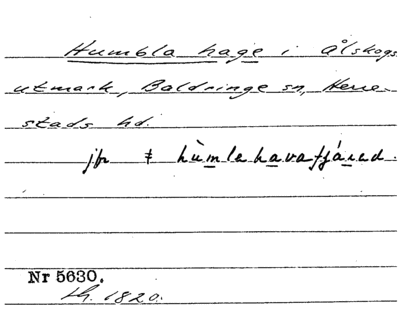 Humbla hage i Ålskogs
utmark, Baldringe sn, Herre-
stads hd.
jfr ‡ hùmlahavafjárad.
Nr 5630.
Lh. 1820.